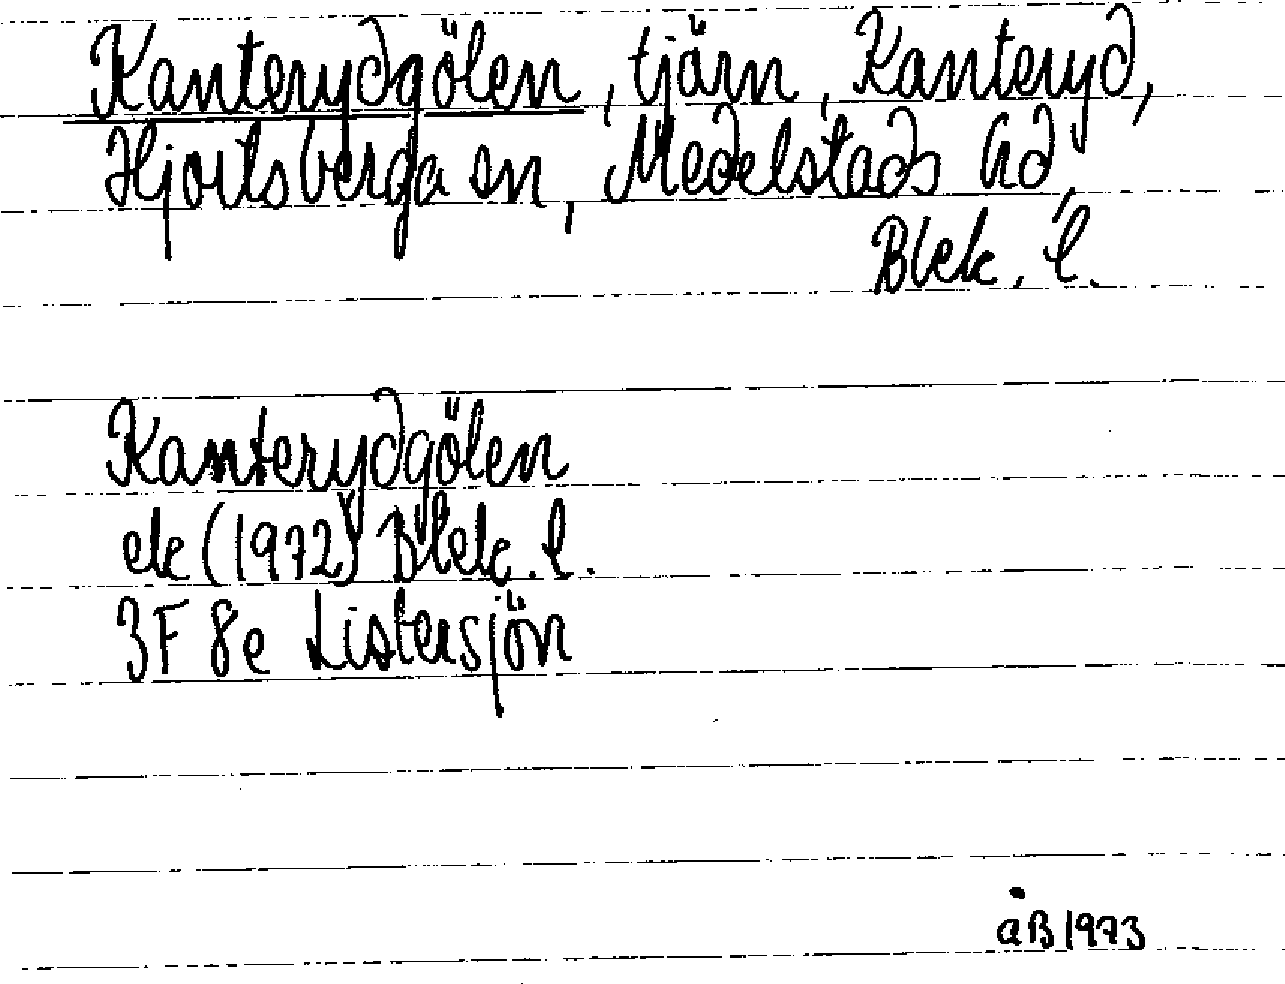 Kanterydgölen, tjärn, Kanteryd,
Hjortsberga sn, Medelstads hd,
Blek. l.
Kanterydgölen
ek (1972) Blek. l.
3F 8e Listersjön
åB 1973